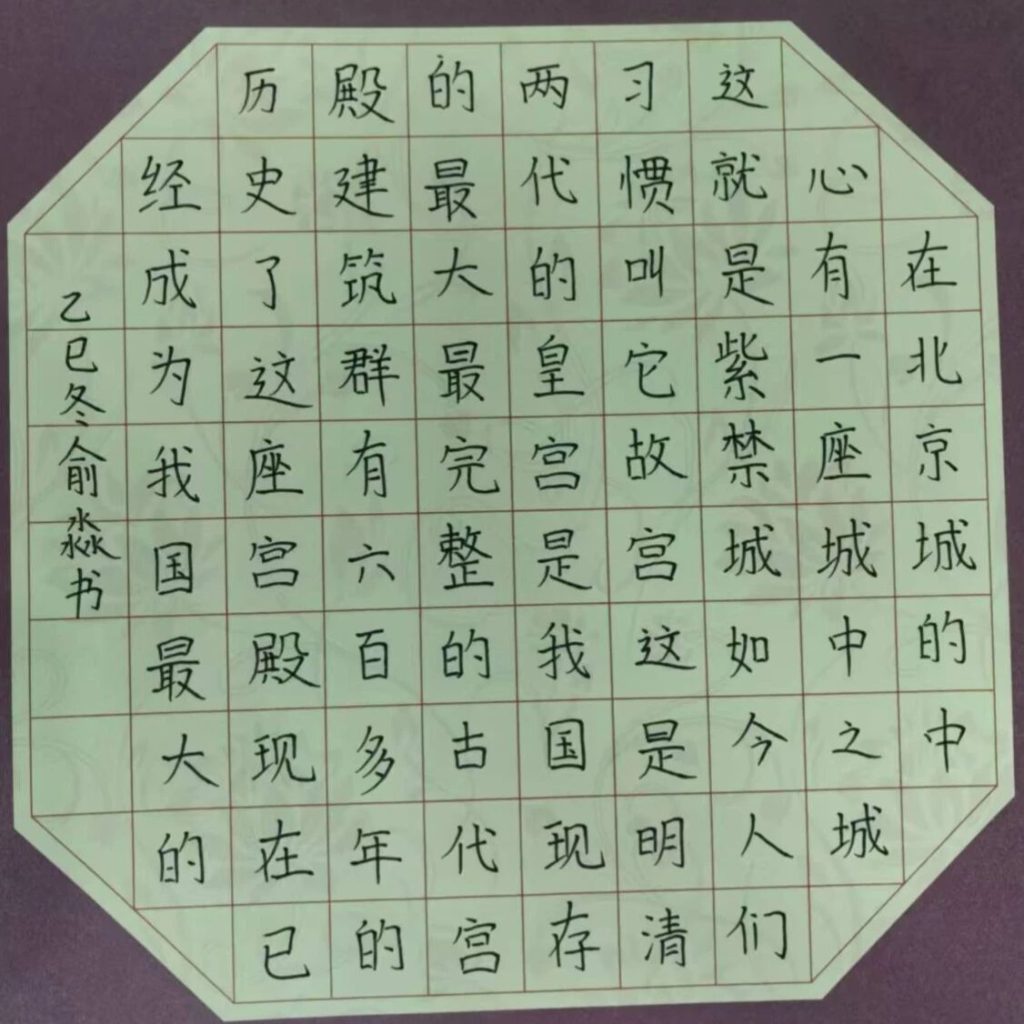 在北京城的中
心有一座城中之城
这就是紫禁城如今人们
习惯叫它故宫这是明清
两代的皇宫是我国现存
的最大最完整的古代宫
殿建筑群有六百多年的
历史了这座宫殿现在已
经成为我国最大的
乙巳冬俞淼书